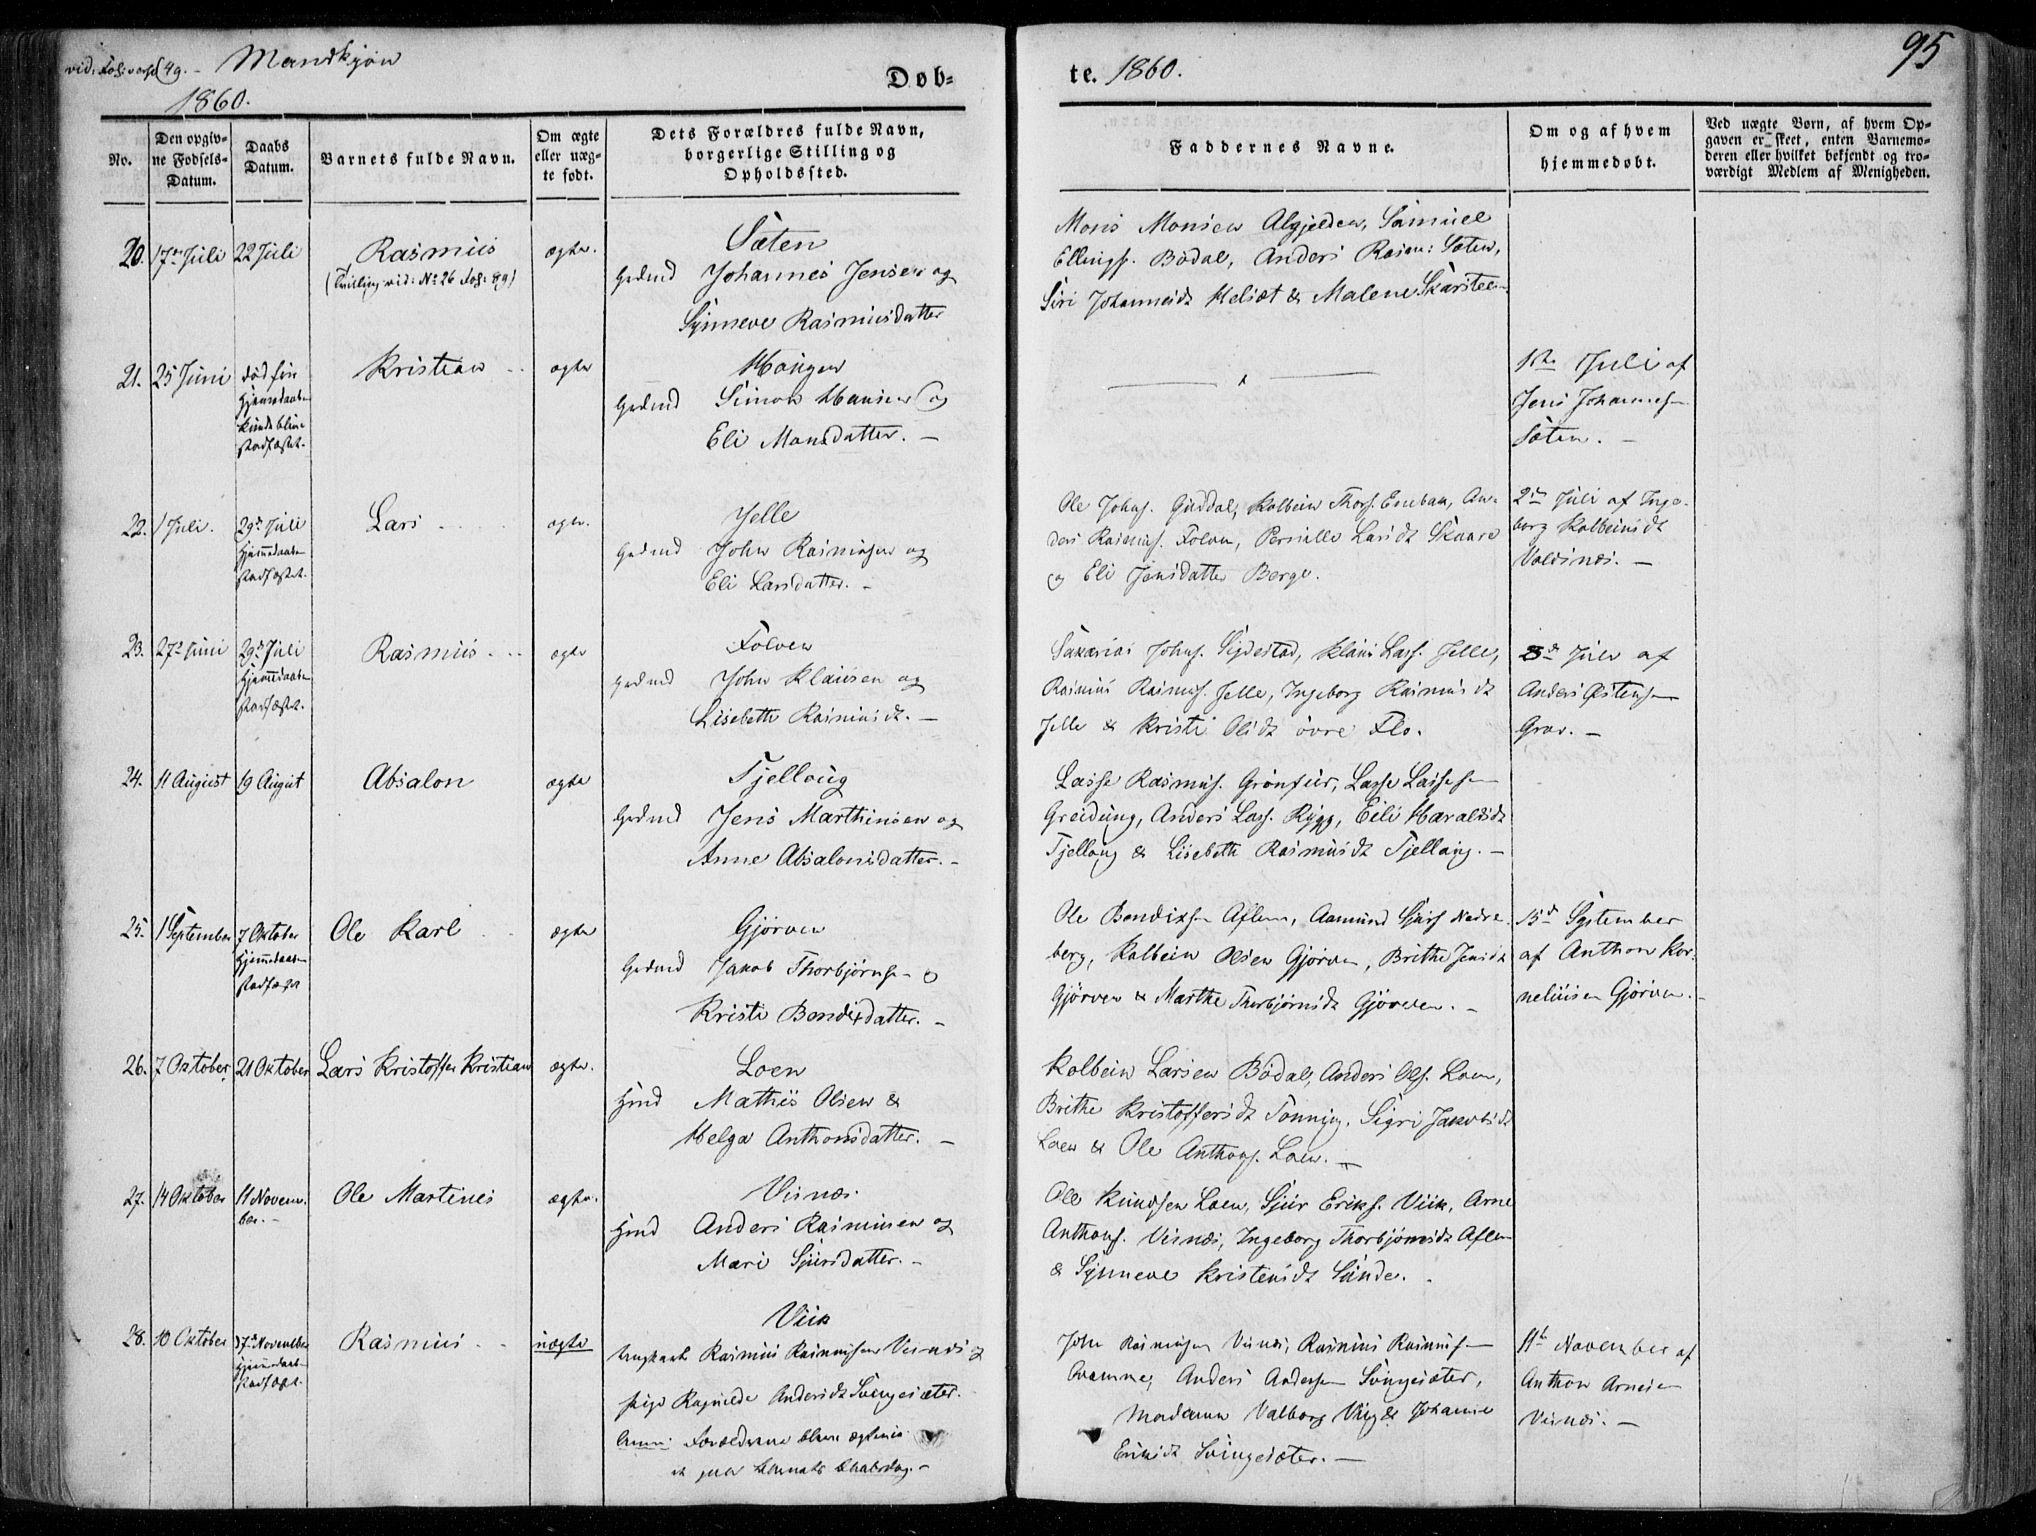 Mandkjøn
1860.
Døb-
te. 1860.
95
No.
Den opgiv-
ne Fødsels-
Datum.
Daabs
Datum.
Barnets fulde Navn.
Om ægte
eller uæg-
te født.
Dets Forældres fulde Navn,
borgerlige Stilling og
Opholdssted.
Faddernes Navne.
Om og af hvem
hjemmedøbt.
Ved uægte Børn, af hvem Op-
gaven er skeet, enten Barnemo-
deren eller hvilket bekjendt og tro-
værdigt Medlem af Menigheden.
20. 17de Juli 22 Juli Rasmus ægte.
(Tvilling vid: No 26 Fol: 99)
Sæten
Gdmd Johannes Jensen og
Synneve Rasmusdatter
Mons Monsen Algjelden, Samuel
Ellings. Bødal, Anders Rasm: Sæten,
Siri Johannesdt Melsæt & Malene Skarsteen
21. 25 Juni død før
hjemmedaaben
kunde blive
stadfæstet.
Kristian ægte
Haugen
Gdmd Simon Hansen og
Eli Monsdatter. –
1ste Juli af
Jens Johannes.
Sæten. –
22. 1 Juli. 29de Juli
hjemmedaaben
stadfæstet.
Lars ægte.
Jelle
Gdmd John Rasmusen og
Eli Larsdatter. –
Ole Johns. Guddal, Kolbein Thors. Eneban, An-
ders Rasmus. Folven, Pernille Larsdt Skaare
og Eli Jensdatter Berge.
2den Juli af Inge-
borg Kolbeinsdt
Valdsnæs. –
23. 27de Juni 29de Juli
hjemmedaaben
stadfæstet.
Rasmus ægte
Folven
Gdmd John Klausen og
Lisebeth Rasmusdt. –
Sakarias Johns. Sigdestad, Klaus Lass. Jelle,
Rasmus Rasmus. Jelle, Ingeborg Rasmusdt
Jelle & Kristi Olsdt øvre Flo.
3de Juli af
Anders Østensen
Grov. –
24. 11 August 19 August Absalon ægte
Tjelloug
Gdmd Jens Marthinsen og
Anne Absalonsdatter. –
Lasse Rasmus. Grønfur, Lasse Lassesen
Greidung, Anders Lass. Rygg, Eili Haraldsdt
Tjelloug & Lisebeth Rasmusdt Tjelloug. –
25. 1 September 7 Oktober
hjemmedaaben
stadfæst
Ole Karl ægte
Gjørven
Gdmd Jakob Thorbjørns. og
Kristi Bendixdatter. –
Ole Bendixsen Aflem, Aamund Sjurs. Nedre-
berg, Kolbein Olsen Gjørven, Brithe Jensdt
Gjørven & Marthe Thorbjørnsdt Gjørven. –
15de September
af Anthon Kor-
neliusen Gjørven. –
26. 7 Oktober 21 Oktober Lars Kristoffer Kristian ægte.
Loen
Hmd Mathis Olsen &
Helga Anthonsdatter. –
Kolbein Larsen Bødal, Anders Ols. Loen,
Brithe Kristoffersdt Tonning, Sigri Jakobsdt
Loen & Ole Anthons. Loen. –
27. 14 Oktober 11 Novem-
ber. –
Ole Martines ægte.
Visnæs
Hmd Anders Rasmusen og
Mari Sjursdatter. –
Ole Knudsen Loen, Sjur Eriks. Viik, Arne
Anthons. Visnæs, Ingeborg Thorbjørnsdt Aflem
& Synneve Kristensdt Sunde.
28. 10 Oktober 17de November
hjemmedaab
stadfæst.
Rasmus uægte
Viik
Ungkarl Rasmus Rasmusen Visnæs og
pige Ragnilde Andersdt Svingesæter.
Anm: Forældrene bleve ægteviet
paa Barnets Daabsdag. –
John Rasmusen Visnæs, Rasmus Rasmus.
Kvamme, Anders Andersen Svingesæter,
Madame Valborg Viig & Johanne
Eriksdt Svingesæter. –
11te November af
Anthon Arnesen
Visnæs. –